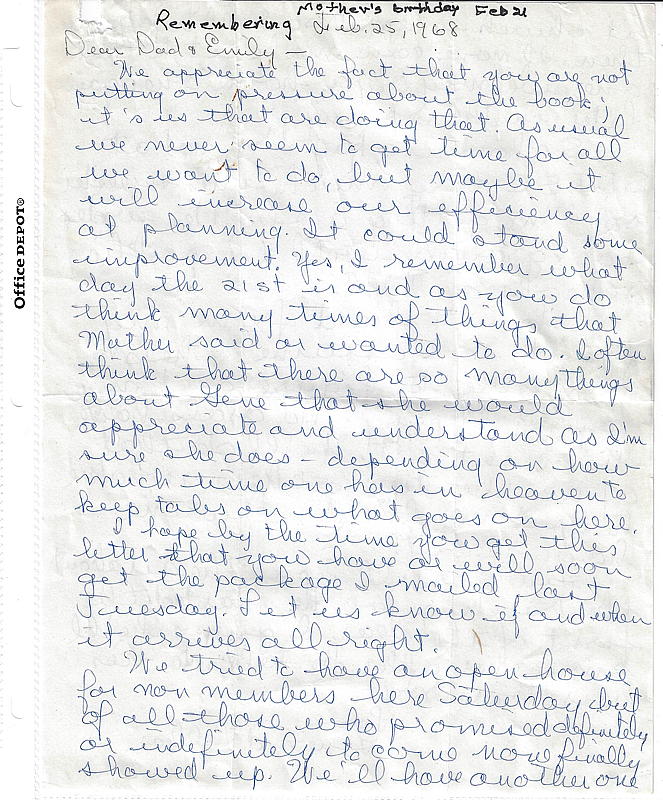 Mother's birthday Feb 21
Remembering Feb. 25, 1968
Dear Dad & Emily —
We appreciate the fact that you are not
putting on pressure about the book;
it's us that are doing that. As usual
we never seem to get time for all
we want to do, but maybe it
will increase our efficiency
at planning. It could stand some
improvement. Yes, I remember what
day the 21st is and as you do
think many times of things that
Mother said or wanted to do. I often
think that there are so many things
about Gene that she would
appreciate and understand as I'm
sure she does - depending on how
much time one has in heaven to
keep tabs on what goes on here.
I hope by the time you get this
letter that you have or will soon
get the package I mailed last
Tuesday. Let us know if and when
it arrives all right.
We tried to have an open house
for non members here Saturday but
of all those who promised definitely
or indefinitely to come none finally
showed up. We'll have another one
Office DEPOT®